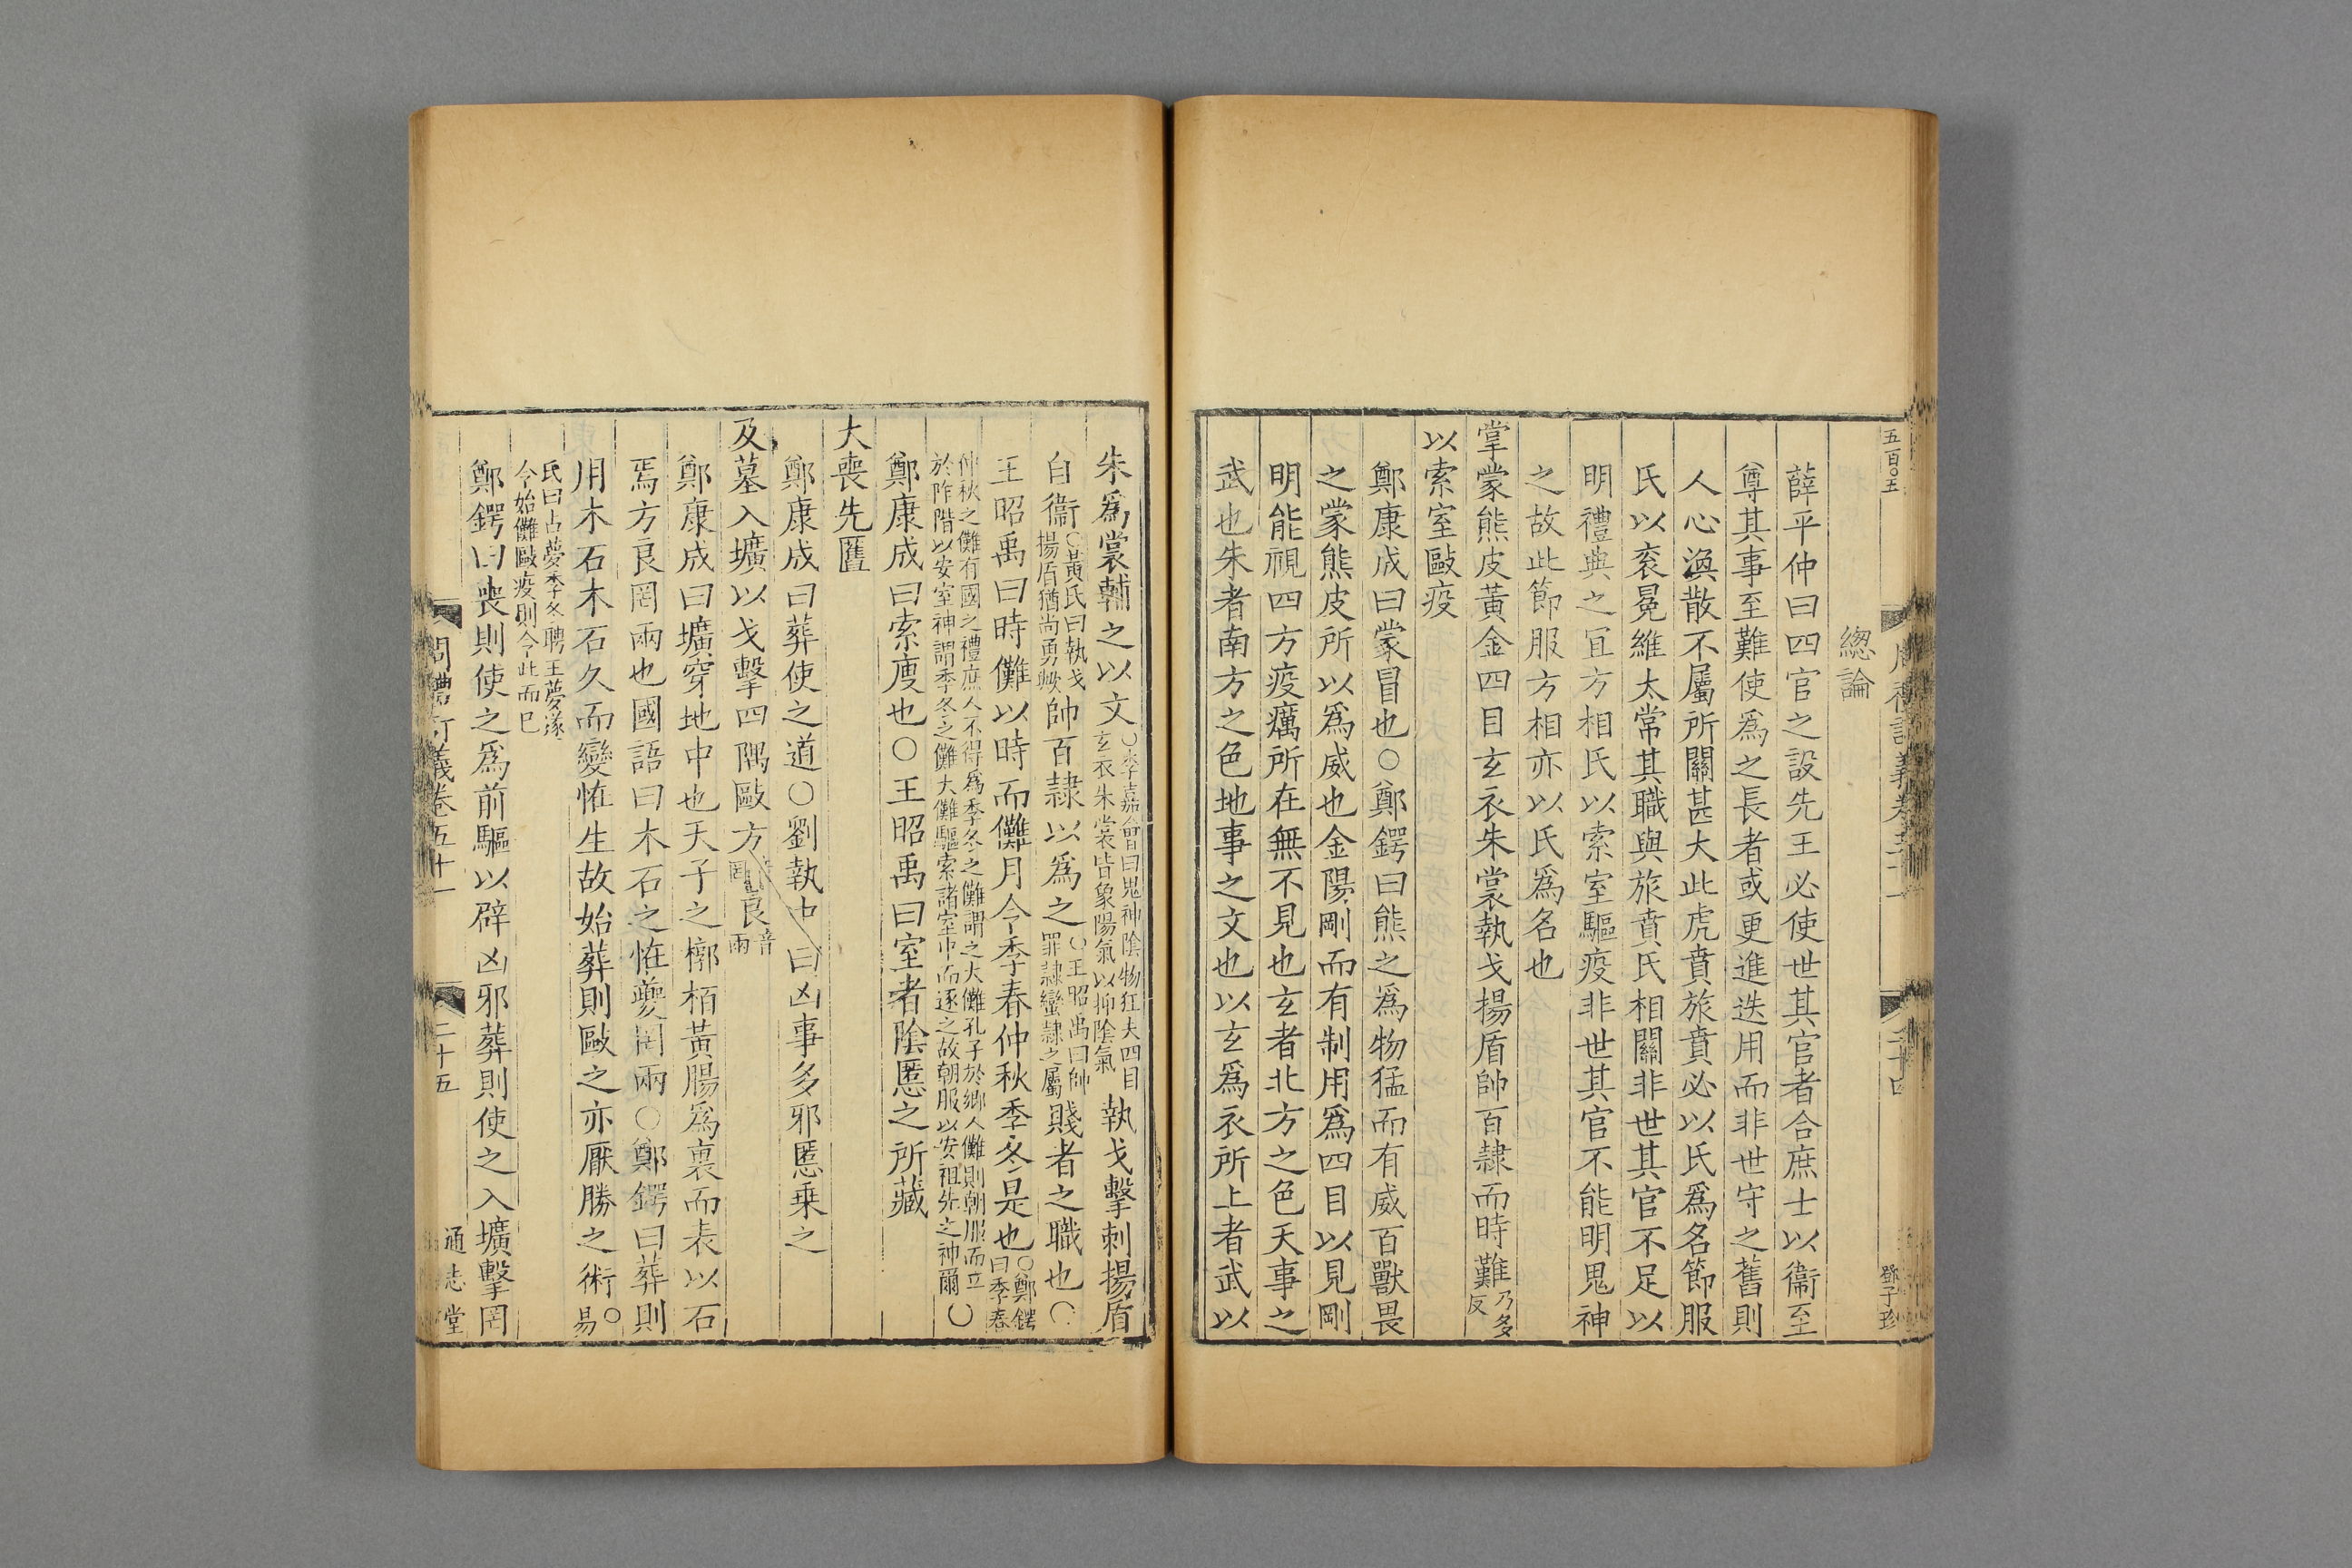 五百〇五
三十四
鄧子珍
總論
薛平仲曰四官之設先王必使世其官者合庶士以衞至
尊其事至難使爲之長者或更進迭用而非世守之舊則
人心渙散不屬所關甚大此虎賁旅賁必以氏爲名節服
氏以衮冕維太常其職與旅賁氏相關非世其官不足以
明禮典之宜方相氏以索室驅疫非世其官不能明鬼神
之故此節服方相亦以氏爲名也
掌蒙熊皮黃金四目玄衣朱裳執戈揚盾帥百隸而時難乃多反
以索室毆疫
鄭康成曰蒙冒也○鄭鍔曰熊之爲物猛而有威百獸畏
之蒙熊皮所以爲威也金陽剛而有制用爲四目以見剛
明能視四方疫癘所在無不見也玄者北方之色天事之
武也朱者南方之色地事之文也以玄爲衣所上者武以
朱爲裳輔之以文○李嘉會曰鬼神陰物狂夫四目玄衣朱裳皆象陽氣以抑陰氣執戈擊刺揚盾
自衞○黃氏曰執戈揚盾猶尚勇帥百隸以爲之○王昭禹曰帥罪隸蠻隸之屬賤者之職也○
王昭禹曰時儺以時而儺月令季春仲秋季冬是也○鄭鍔曰季春
仲秋之儺有國之禮庶人不得爲季冬之儺謂之大儺孔子於鄉人儺則朝服而立
於阼階以安室神謂季冬之儺大儺驅索諸室中而逐之故朝服以安祖先之神爾○
鄭康成曰索廋也○王昭禹曰室者陰慝之所藏
大喪先匶
鄭康成曰葬使之道○劉執中曰凶事多邪慝乗之
及墓入壙以戈擊四隅毆方音罔良音兩
鄭康成曰壙穿地中也天子之槨栢黃腸爲裏而表以石
焉方良罔兩也國語曰木石之恠夔罔兩○鄭鍔曰葬則
用木石木石久而變恠生故始葬則毆之亦厭勝之術○易
氏曰占夢季冬聘王夢遂
令始儺毆疫則令此而已
鄭鍔曰喪則使之爲前驅以辟凶邪葬則使之入壙擊罔
周禮訂義卷五十一
二十五
通志堂